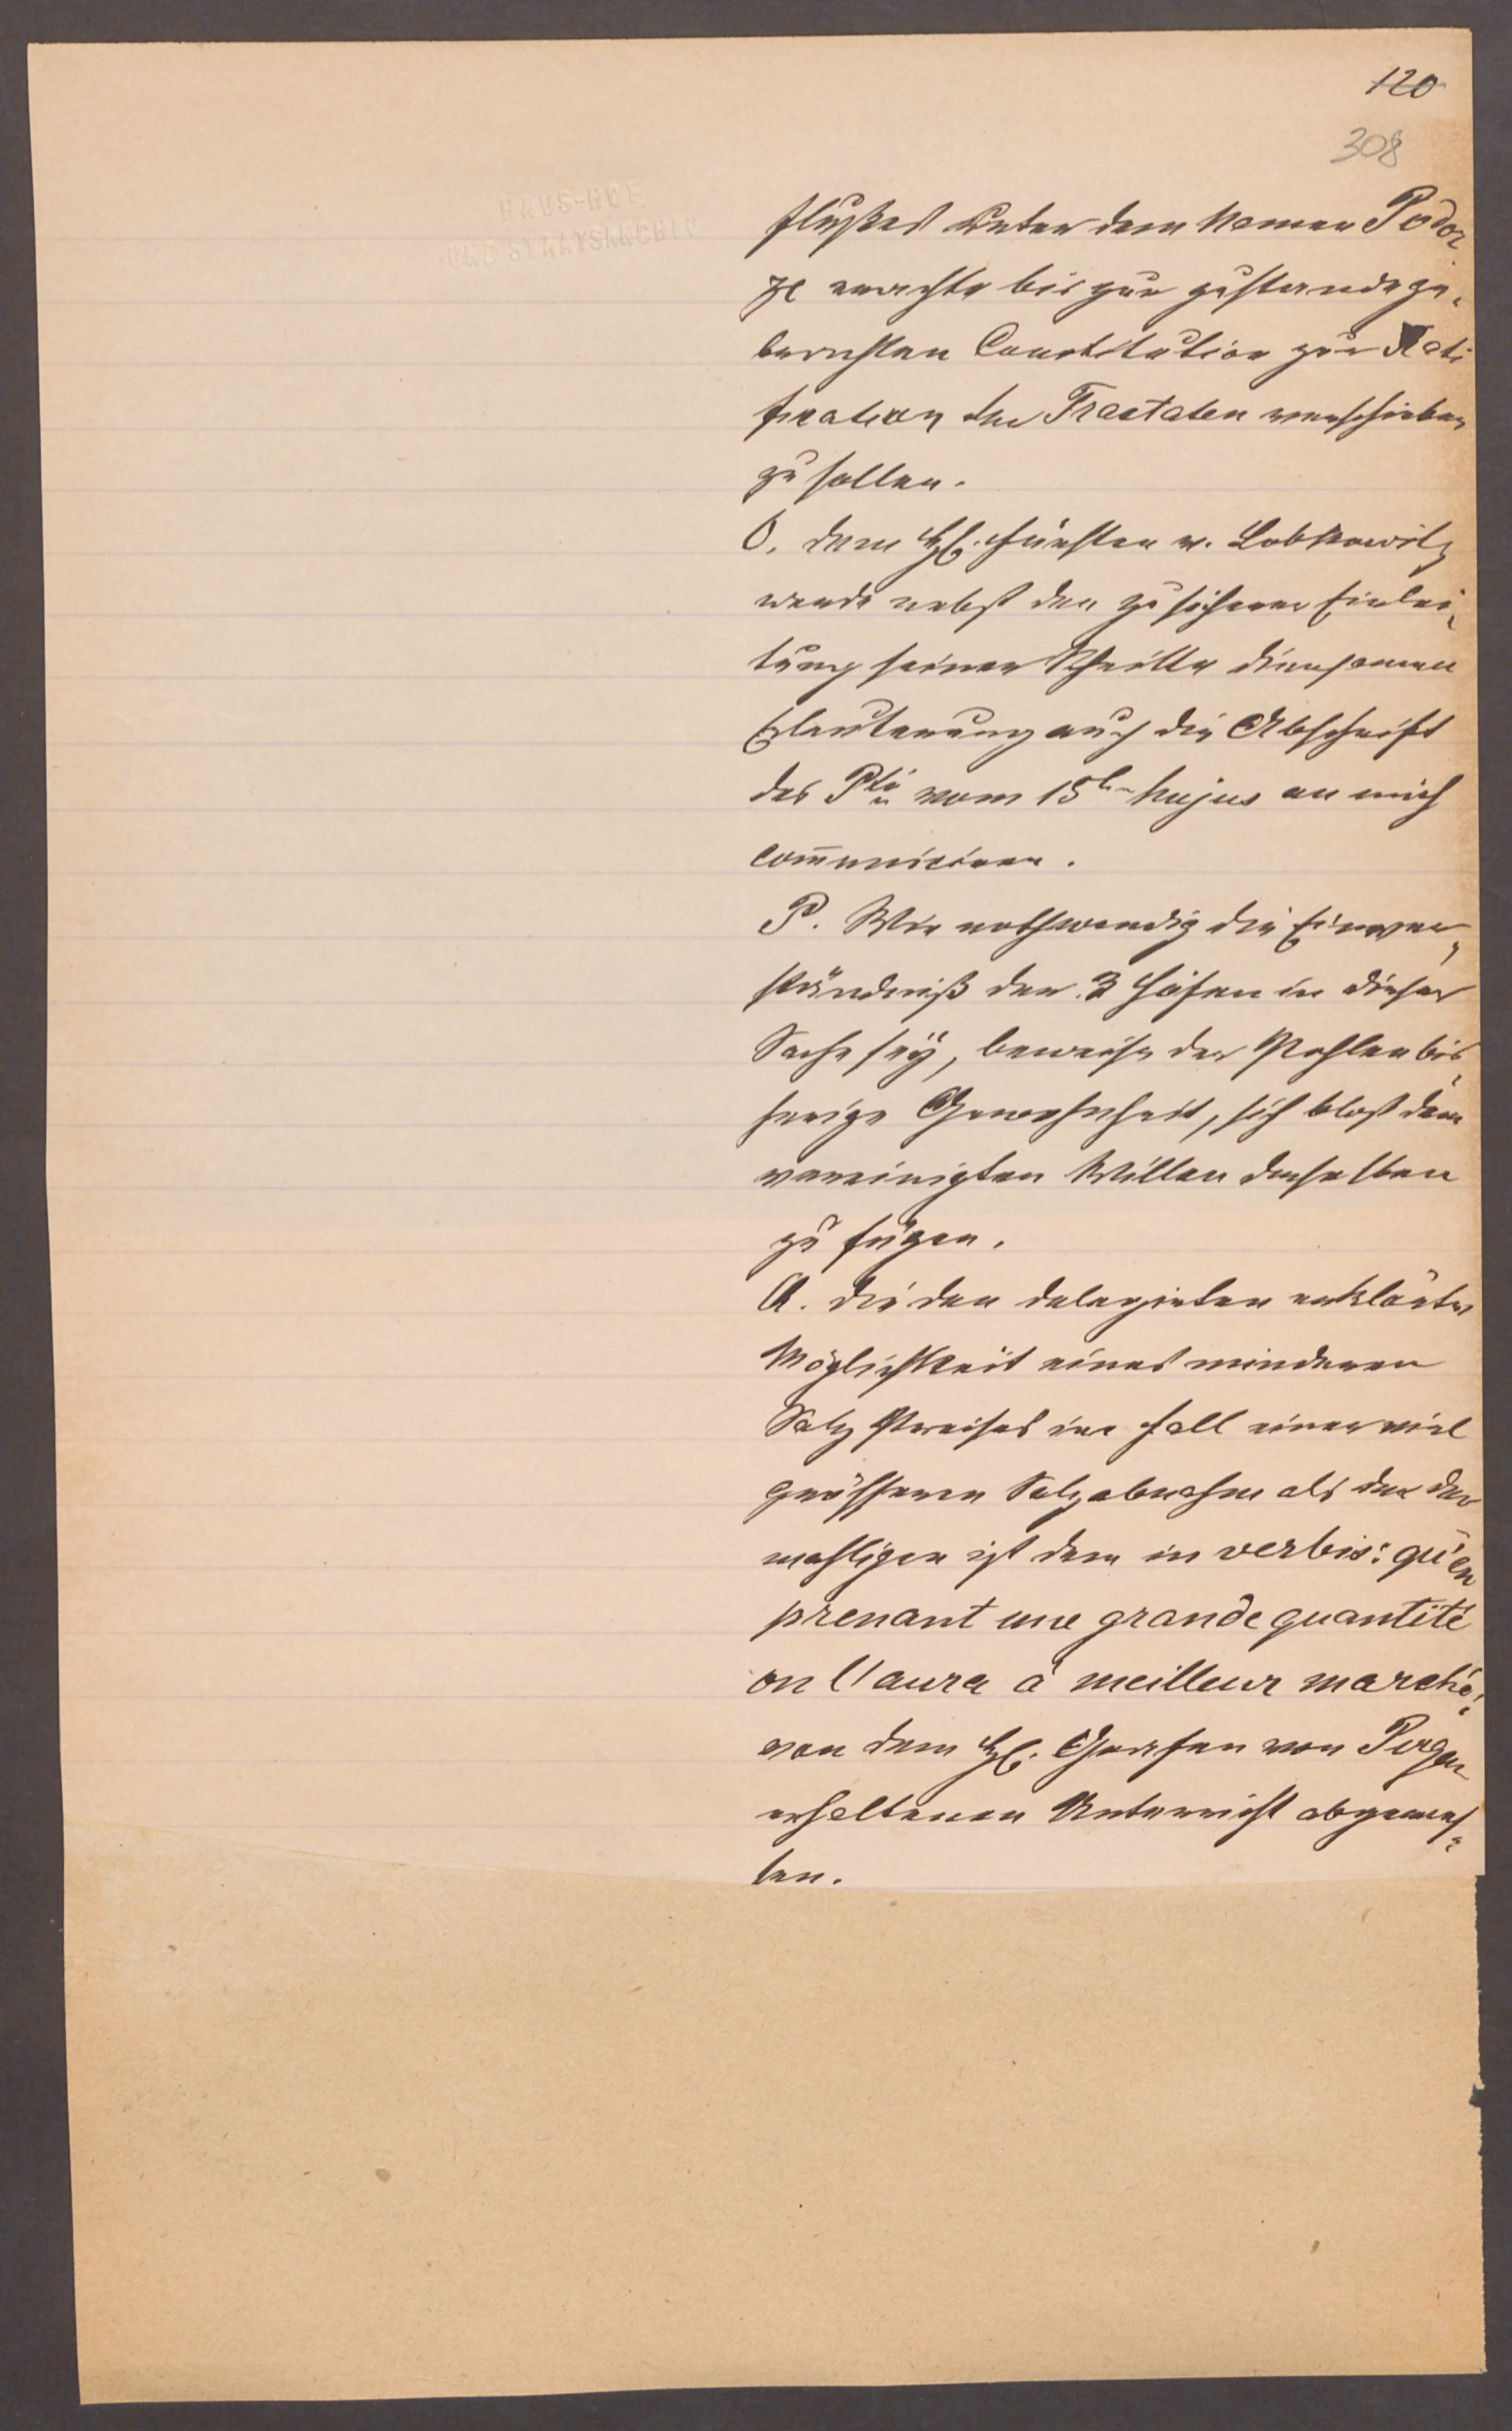 120
308
HAUS-HOF
UND STAATSARCHIV
flußes unter dem Namen Podor
ze erachte bis zur zustande ge¬
brachten Constitution zur Rati
fication der Tractaten verschieben
zu sollen.
O. dem H. Fürsten v. Lobkowitz
werde nebst den zu sicherer Einlei¬
tung seiner Schritte diensamen
Erläuterung auch die Abschrift
des Pti vom 15t hujus an mich
com̄uniciren.
P. Wie nothwendig die Einver¬
ständniß der 3 Höfen in dieser
Sache seÿ, beweise der Pohlen bis¬
herige Gewohnheit, sich blos dem
vereinigten Willen derselben
zu fügen.
Q. die den delegirten erklärte
Möglichkeit eines minderen
Salz Preises im Fall einer viel
grösseren Salzabnahm als der der
mahligen ist dem in verbis: qu'en
prenant une grande quantité
on l'aura à meilleur marché:
von dem H. Grafen von Pergen
erhaltenen Unterricht abgemes¬
sen.